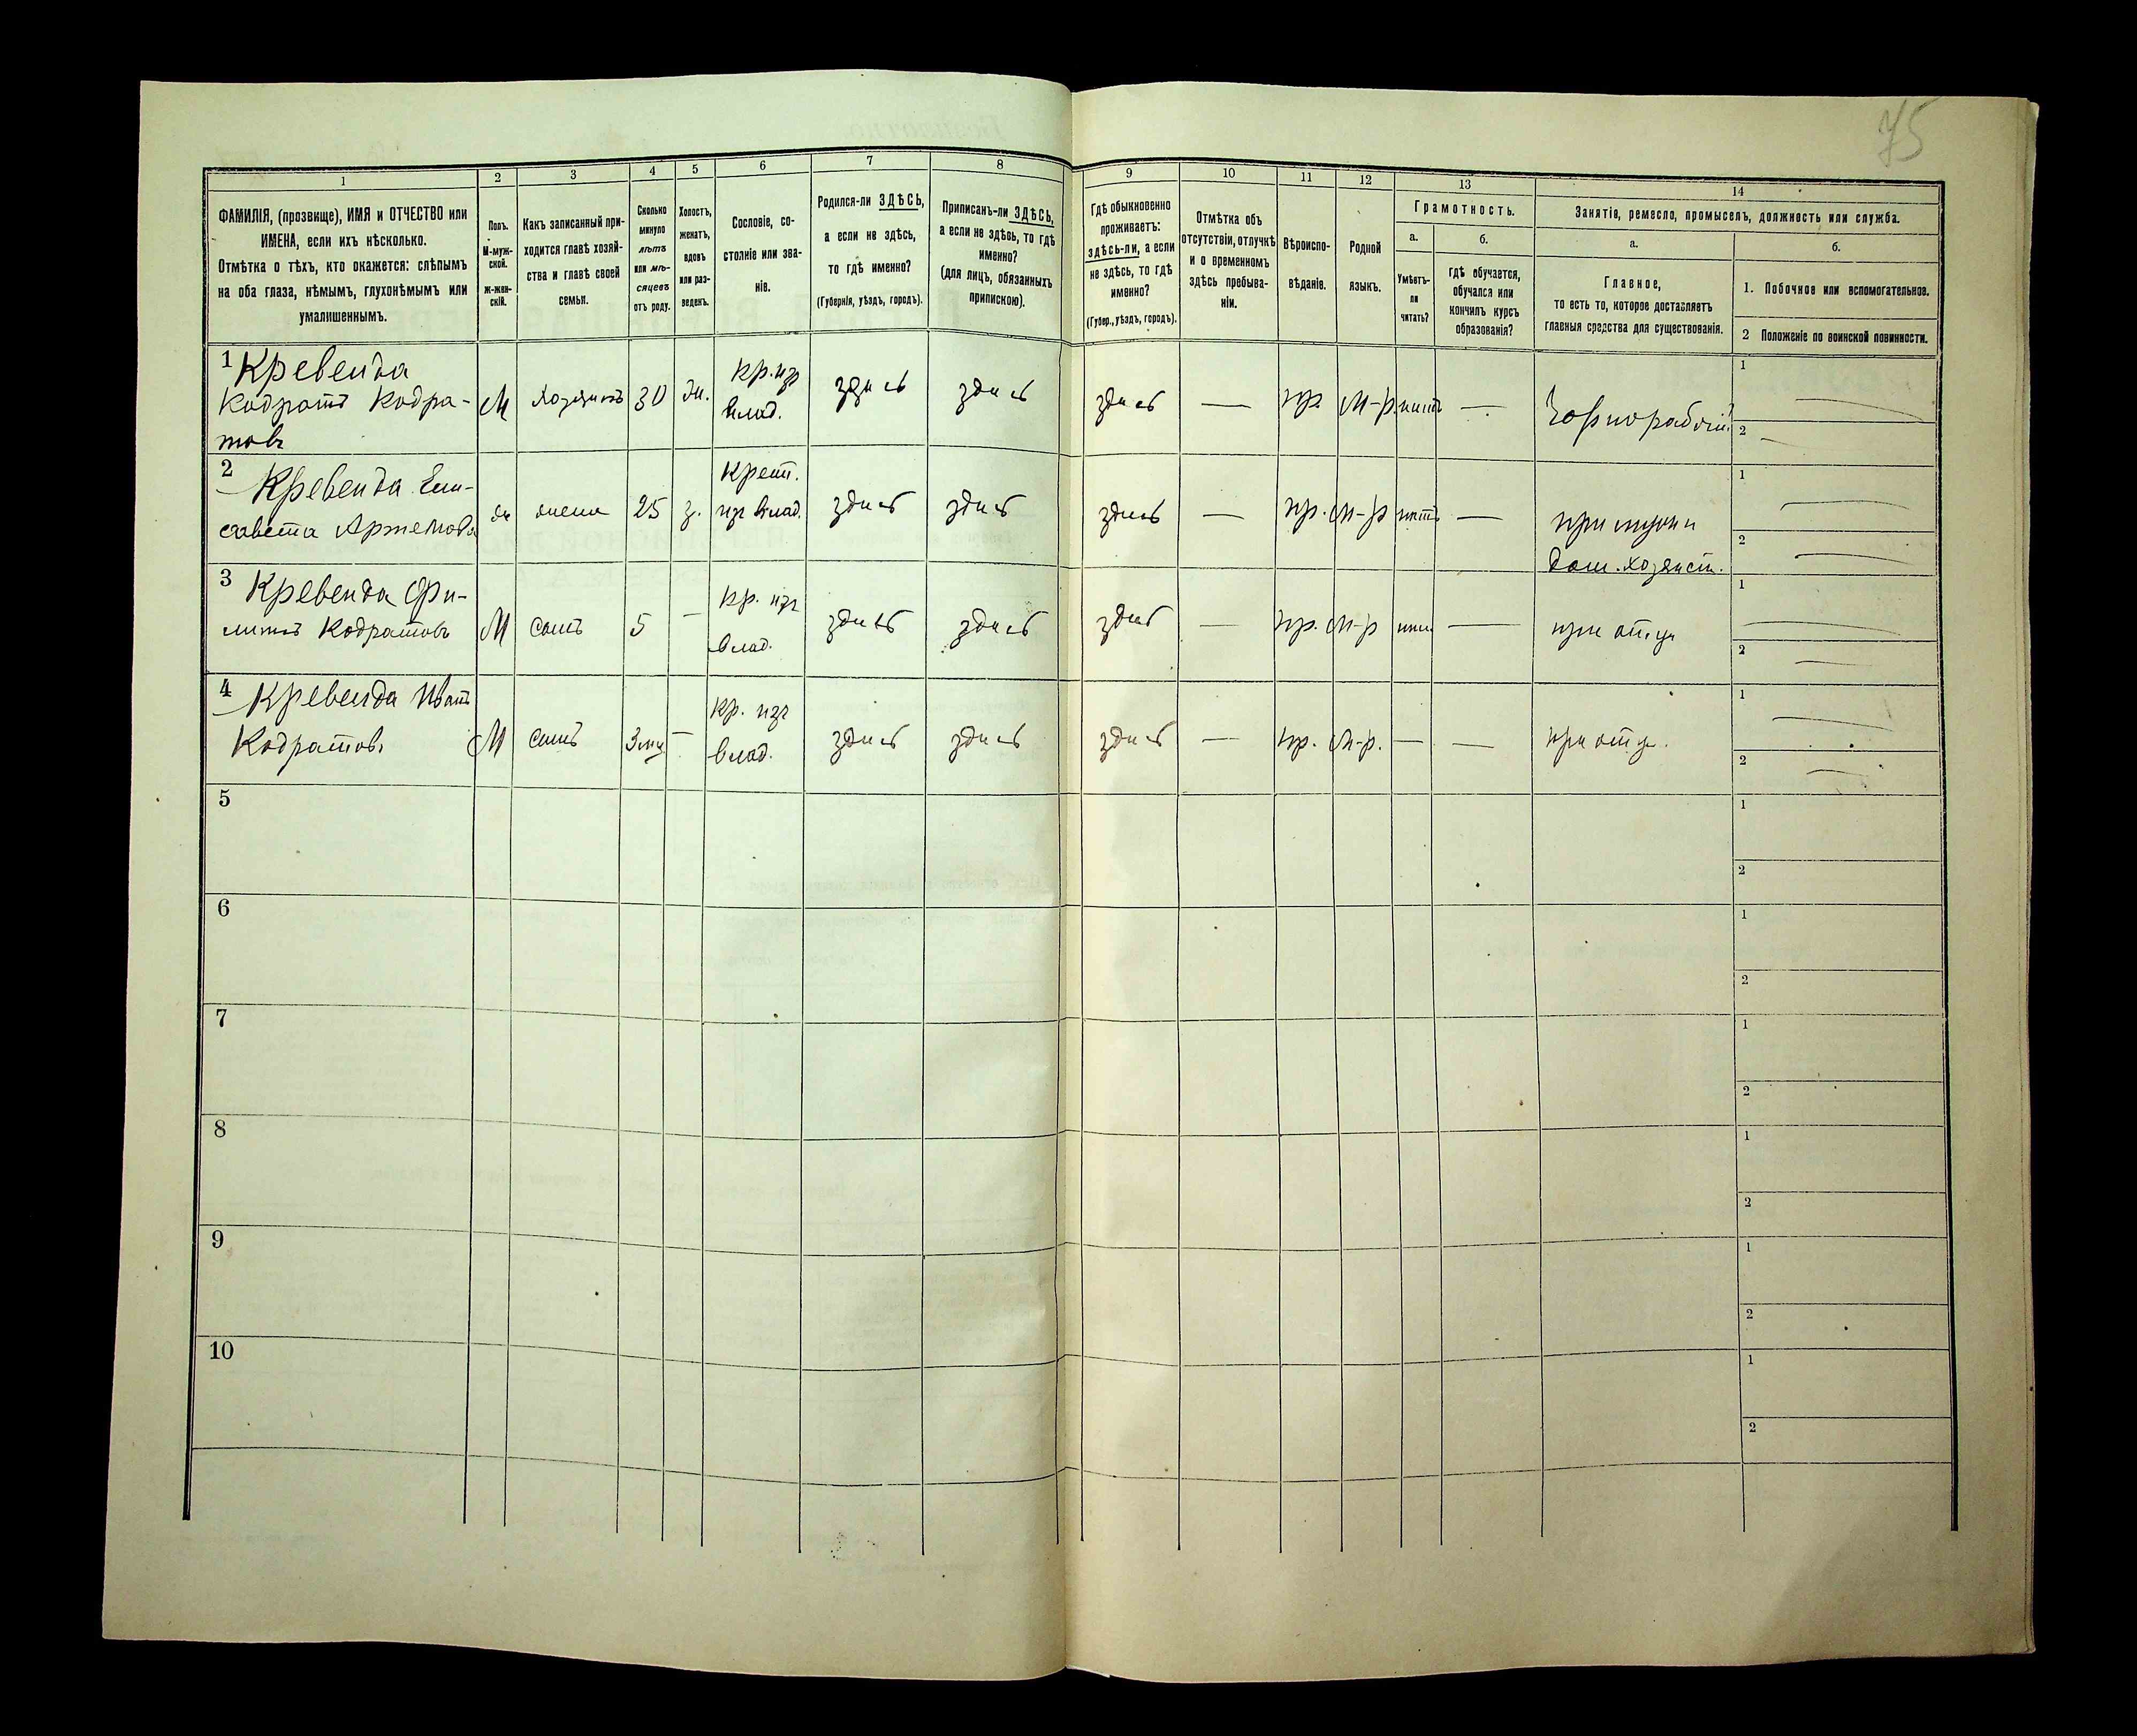 75
1 2 3 4 5 6 7 8 9 10 11 12 13 14
ФАМИЛІЯ, (прозвище), ИМЯ и ОТЧЕСТВО или
ИМЕНА, если ихъ нѣсколько.
Отмѣтка о тѣхъ, кто окажется: слѣпымъ
на оба глаза, нѣмымъ, глухонѣмымъ или
умалишеннымъ.
Полъ.
М-муж-
ской.
ж-жен-
скій.
Какъ записанный при-
ходится главѣ хозяй-
ства и главѣ своей
семьи.
Сколько
минуло
лѣтъ
или мѣ-
сяцевъ
отъ роду.
Холостъ,
женатъ,
вдовъ
или раз-
веденъ.
Сословіе, со-
стояніе или зва-
ніе.
Родился-ли ЗДѢСЬ,
а если не здѣсь,
то гдѣ именно?
(Губернія, уѣздъ, городъ).
Приписанъ-ли ЗДѢСЬ,
а если не здѣсь, то гдѣ
именно?
(для лицъ, обязанныхъ
припискою).
Гдѣ обыкновенно
проживаетъ:
здѣсь-ли, а если
не здѣсь, то гдѣ
именно?
(Губер., уѣздъ, городъ).
Отмѣтка объ
отсутствіи, отлучкѣ
и о временномъ
здѣсь пребыва-
ніи.
Вѣроиспо-
вѣданіе.
Родной
языкъ.
Грамотность.
а.
Умѣетъ-
ли
читать?
б.
гдѣ обучается,
обучался или
кончилъ курсъ
образованія?
Занятія, ремесло, промыселъ, должность или служба.
а.
Главное,
то есть то, которое доставляетъ
главныя средства для существованія.
б.
1. Побочное или вспомогательное.
2 Положеніе по воинской повинности.
1 Кревенда
Кодратъ Кодра-
товъ
М хозяинъ 30 ж. кр. из влад. здѣсь здѣсь здѣсь — пр. м-р. нѣтъ — Чорнорабочій
1 —
2 —
2 Кревенда Ели-
савета Артемова
ж жена 25 з. крест. из влад. здѣсь здѣсь здѣсь — пр. м-р нѣтъ — при мужѣ
дом. хозяйст.
1 —
2 —
3 Кревенда Фи-
липъ Кодратовъ
М сынъ 5 — кр. из влад. здѣсь здѣсь здѣсь — пр. м-р — при отцѣ
1 —
2 —
4 Кревенда Иванъ
Кодратовъ
М сынъ 3 мц — кр. из влад. здѣсь здѣсь здѣсь — пр. м-р. — — при отцѣ.
1 —
2 —
5
1
2
6
1
2
7
1
2
8
1
2
9
1
2
10
1
2